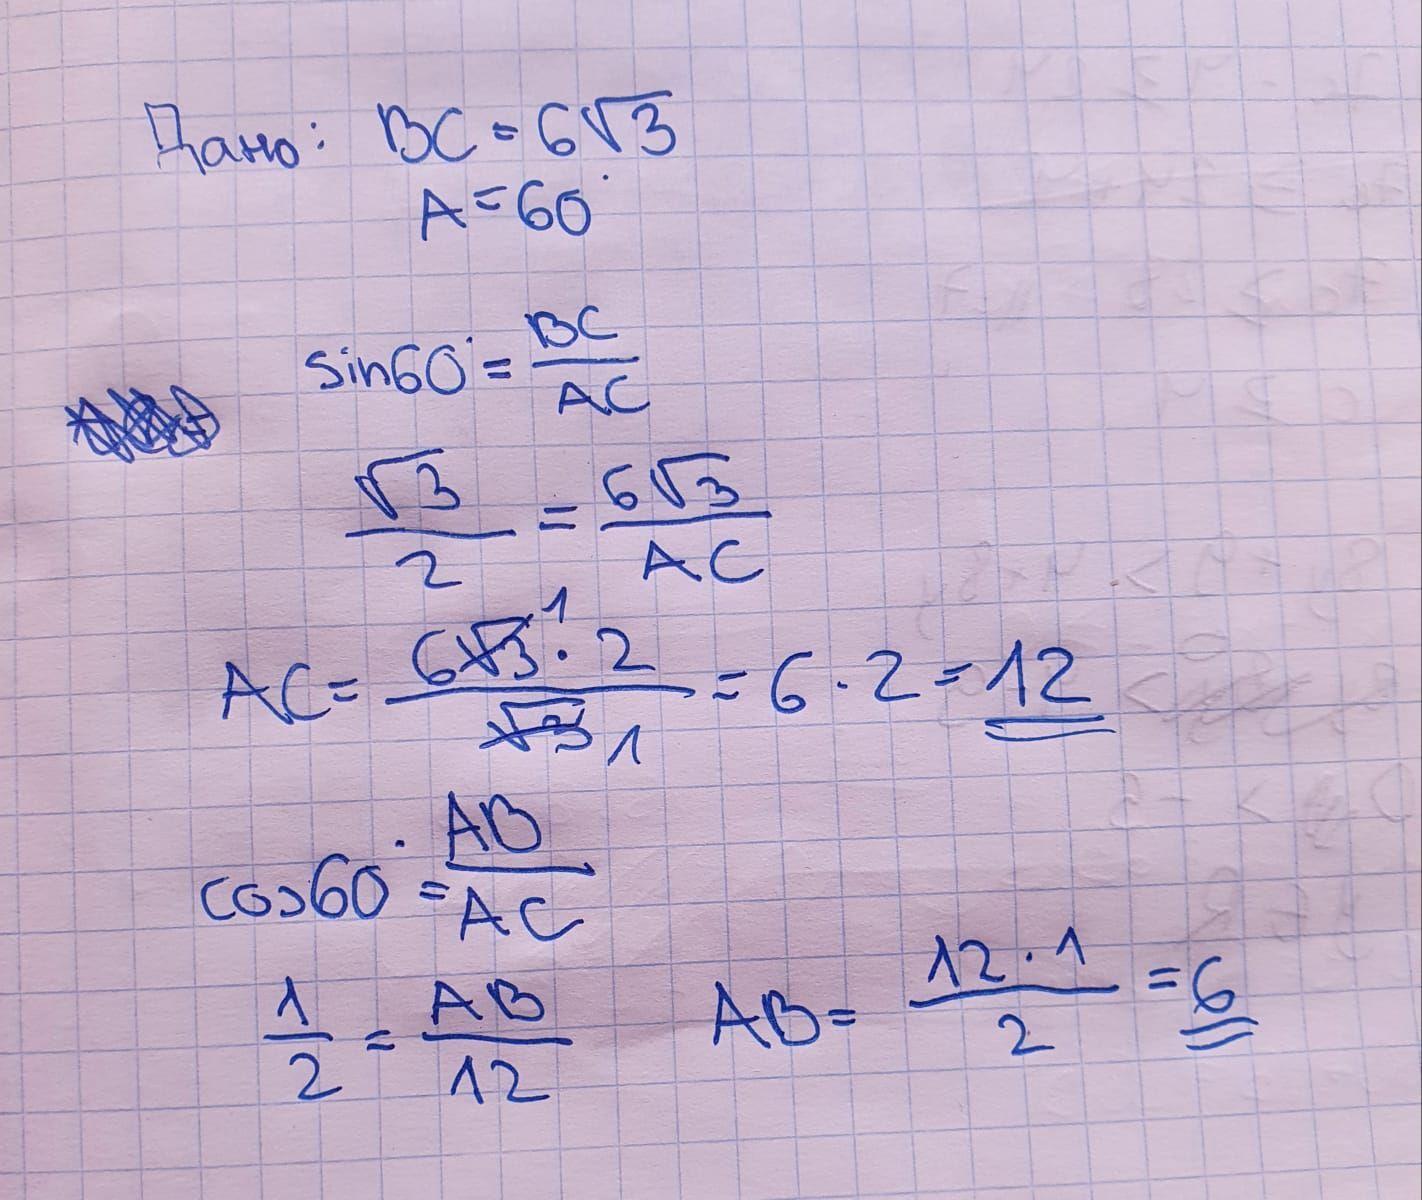 Дано: BC = 6√3
A = 60°
sin60° = BC/AC
√3/2 = 6√3/AC
AC = 6√3¹ · 2/√3 1 = 6 · 2 = 12
cos60° = AB/AC
1/2 = AB/12 AB = 12 · 1/2 = 6